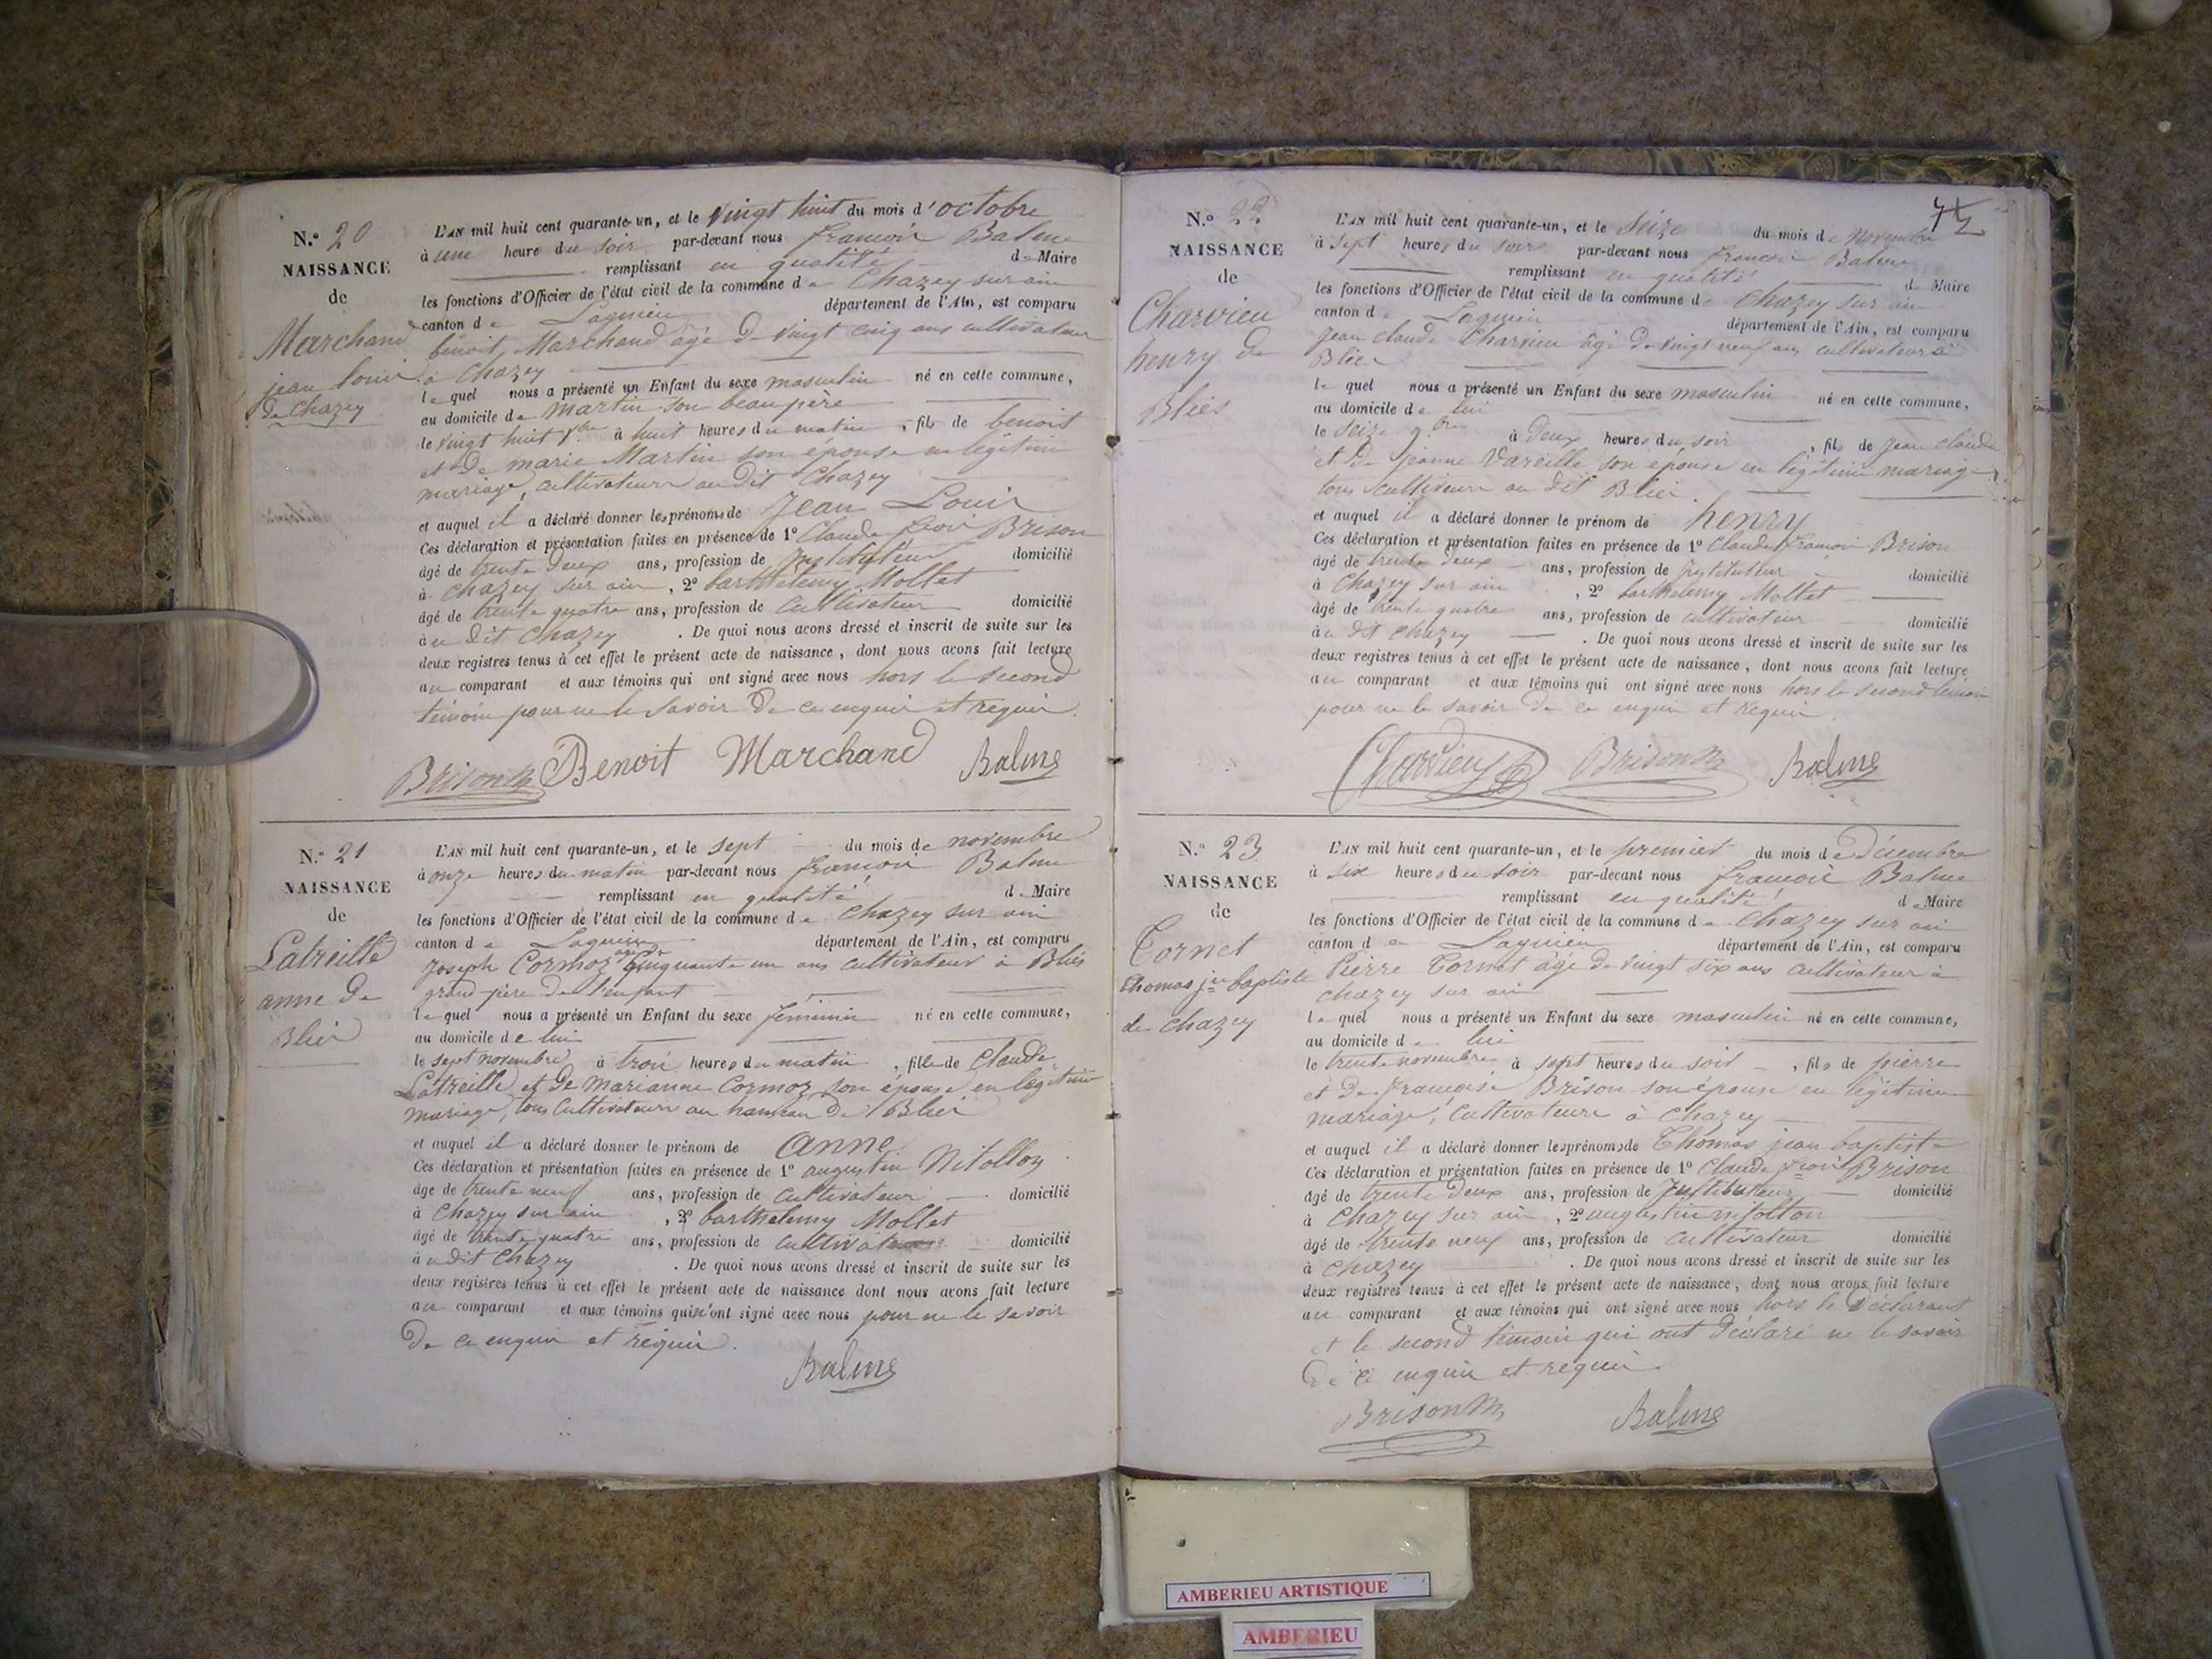 N.º 20
NAISSANCE
de
Marchand
jean louis
de Chazey
L'AN mil huit cent quarante-un, et le vingt huit du mois d'octobre
à une heure du soir par-devant nous francois Balme
remplissant en qualité de Maire
les fonctions d'Officier de l'état civil de la commune de Chazey sur ain
canton de Lagnieu département de l'Ain, est comparu
benoit Marchand agé de vingt cinq ans cultivateur
à Chazey
lequel nous a présenté un Enfant du sexe masculin né en cette commune,
au domicile de martin son beau père
le vingt huit 8bre à huit heures du matin, fils de benoit
et de marie Martin son épouse en légitime
mariage, cultivateurs au dit Chazey
et auquel il a déclaré donner les prénoms de Jean Louis
Ces déclaration et présentation faites en présence de 1º Claude frois Brison
âgé de trente deux ans, profession de Instituteur domicilié
à Chazey sur ain, 2º barthelemy Mollet
âgé de trente quatre ans, profession de Cultivateur domicilié
au dit Chazey. De quoi nous avons dressé et inscrit de suite sur les
deux registres tenus à cet effet le présent acte de naissance, dont nous avons fait lecture
au comparant et aux témoins qui ont signé avec nous hors le second
témoin pour ne le savoir de ce enquis et requis.
Brison m Benoit Marchand Balme
N.º 21
NAISSANCE
de
Latreille
anne de
Blies
L'AN mil huit cent quarante-un, et le sept du mois de novembre
à onze heures du matin par-devant nous francois Balme
remplissant en qualité de Maire
les fonctions d'Officier de l'état civil de la commune de Chazey sur ain
canton de Lagnieu département de l'Ain, est comparu
Joseph Cormoz agé de cinquante un ans cultivateur à Bliés
grand père de l'enfant
lequel nous a présenté un Enfant du sexe féminin né en cette commune,
au domicile de lui
le sept novembre à trois heures du matin, fille de Claude
Latreille et de Marianne Cormoz son épouse en légitime
mariage, tous Cultivateurs au hameau de Bliés
et auquel il a déclaré donner le prénom de anne
Ces déclaration et présentation faites en présence de 1º augustin Nitollon
âgé de trente neuf ans, profession de Cultivateur domicilié
à Chazey sur ain, 2º barthelemy Mollet
âgé de trente quatre ans, profession de Cultivateur domicilié
au dit Chazey. De quoi nous avons dressé et inscrit de suite sur les
deux registres tenus à cet effet le présent acte de naissance dont nous avons fait lecture
au comparant et aux témoins qui n'ont signé avec nous pour ne le savoir
de ce enquis et réquis.
Balme
75
N.º 22
NAISSANCE
de
Charvieu
henry de
Bliés
L'AN mil huit cent quarante-un, et le Seize du mois de Novembre
à sept heures du soir par-devant nous francois Balme
remplissant en qualité de Maire
les fonctions d'Officier de l'état civil de la commune de Chazey sur ain
canton de Lagnieu département de l'Ain, est comparu
Jean claude Charvieu âgé de vingt neuf ans cultivateur à
Blies
lequel nous a présenté un Enfant du sexe masculin né en cette commune,
au domicile de lui
le Seize 9bre à Deux heures du soir, fils de Jean claude
et de Jeanne Vareille son épouse en légitime mariage
tous cultiveurs au dit Blies.
et auquel il a déclaré donner le prénom de henry
Ces déclaration et présentation faites en présence de 1º Claude francois Brison
âgé de trente deux ans, profession de Instituteur domicilié
à Chazey sur ain, 2º barthelemy Mollet
âgé de trente quatre ans, profession de cultivateur domicilié
au dit Chazey. De quoi nous avons dressé et inscrit de suite sur les
deux registres tenus à cet effet le présent acte de naissance, dont nous avons fait lecture
au comparant et aux témoins qui ont signé avec nous hors le second témoin
pour ne le savoir de ce enquis et requis.
Charvieu Brison m Balme
N.º 23
NAISSANCE
de
Cornet
Thomas jn baptiste
de Chazey
L'AN mil huit cent quarante-un, et le premier du mois de Décembre
à six heures du soir par-devant nous francois Balme
remplissant en qualité de Maire
les fonctions d'Officier de l'état civil de la commune de Chazey sur ain
canton de Lagnieu département de l'Ain, est comparu
Pierre Cornet âgé de vingt six ans Cultivateur à
chazey sur ain
lequel nous a présenté un Enfant du sexe masculin né en cette commune,
au domicile de lui
le trente novembre à sept heures du soir, fils de pierre
et de francoise Brison son épouse en légitime
mariage, Cultivateurs à Chazey
et auquel il a déclaré donner les prénoms de Thomas jean baptiste
Ces déclaration et présentation faites en présence de 1º Claude frois Brison
âgé de trente Deux ans, profession de Instituteur domicilié
à Chazey sur ain, 2º augustin nitollon
âgé de trente neuf ans, profession de Cultivateur domicilié
à Chazey. De quoi nous avons dressé et inscrit de suite sur les
deux registres tenus à cet effet le présent acte de naissance, dont nous avons fait lecture
au comparant et aux témoins qui ont signé avec nous hors le déclarant
et le second témoin qui ont déclaré ne le savoir
de ce enquis et requis.
Brison m Balme
AMBERIEU ARTISTIQUE
AMBERIEU